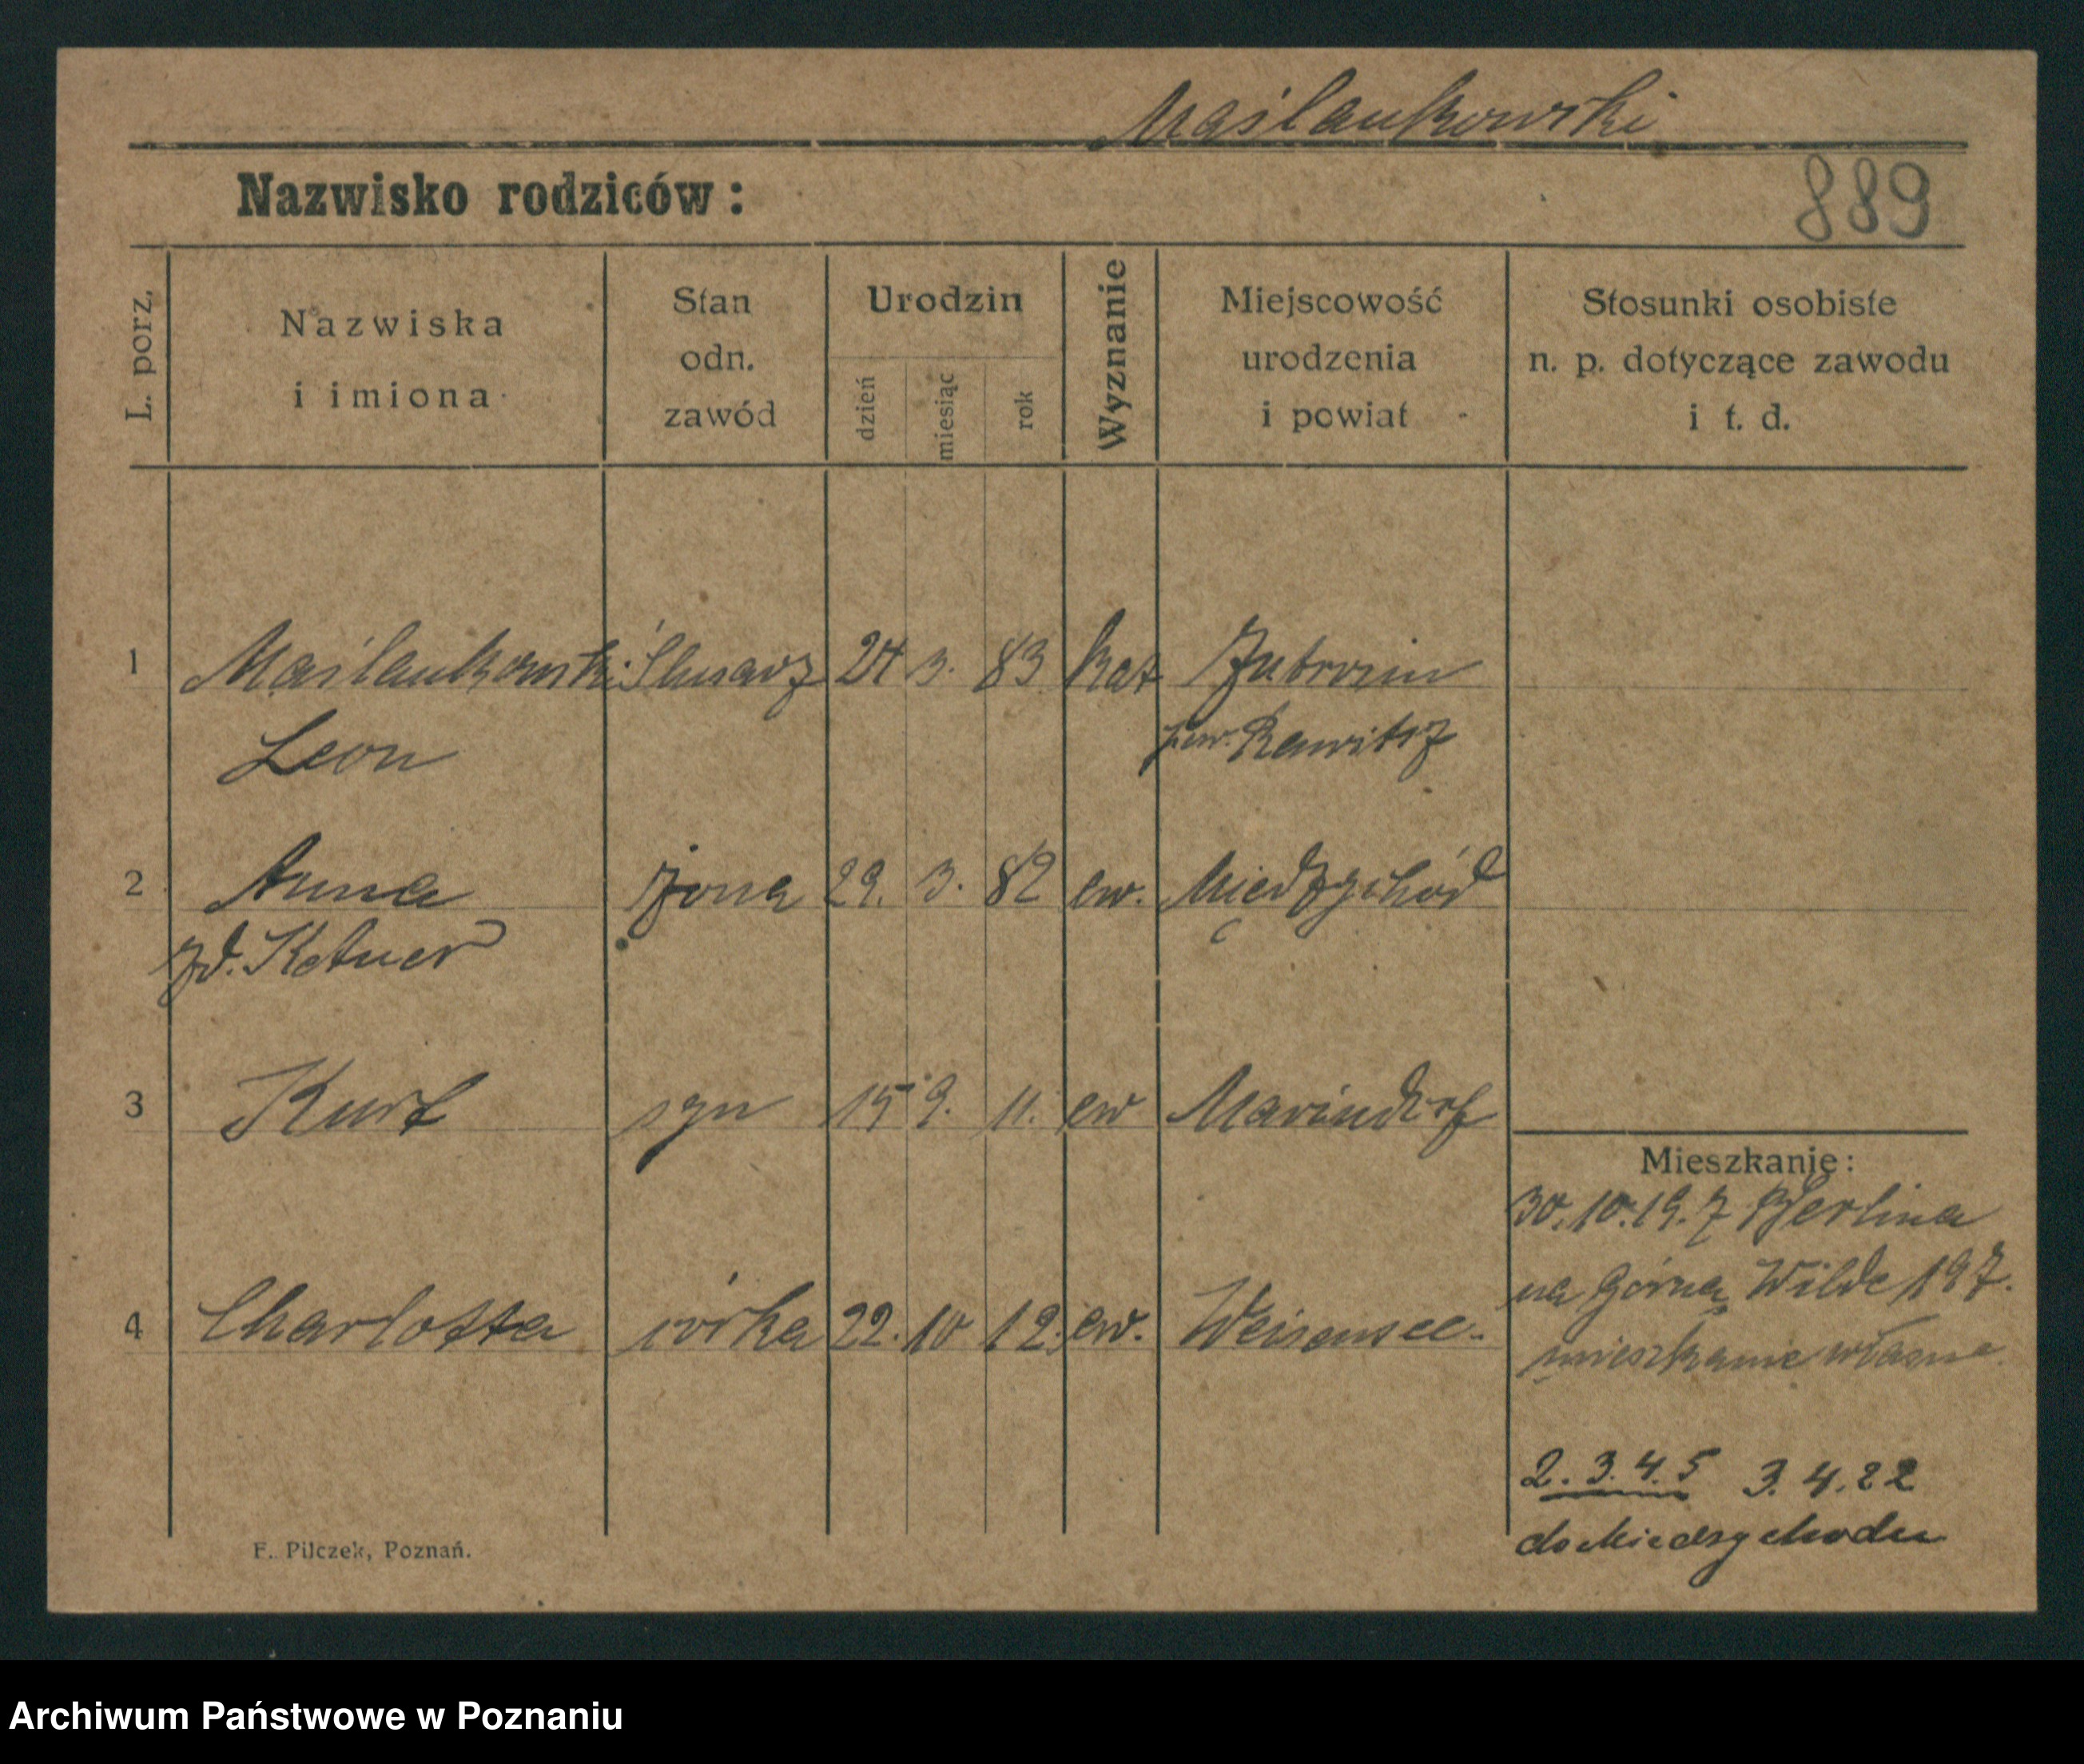 Maślankowski
Nazwisko rodziców:
889
L. porz.
Nazwiska
i imiona
Stan
odn.
zawód
Urodzin
dzień
miesiąc
rok
Wyznanie
Miejscowość
urodzenia
i powiat
Stosunki osobiste
n. p. dotyczące zawodu
i t. d.
1 Maślankowski Ślusarz 24 3. 83 kat Jutrosin
Leon pow. Rawitsz
2 Anna żona 29. 3. 82 ew. Miedzychód
zd. Ketner
3 Kurt syn 15 9. 11. ew Mariendorf
4 Charlotta córka 22. 10 12. ew. Weisensee.
Mieszkanie:
30.10.19. z Berlina
na Górną Wilde 197.
mieszkanie własne.
2. 3. 4. 5 3. 4. 22
do Miedzychodu
F. Pilczek, Poznań.
Archiwum Państwowe w Poznaniu